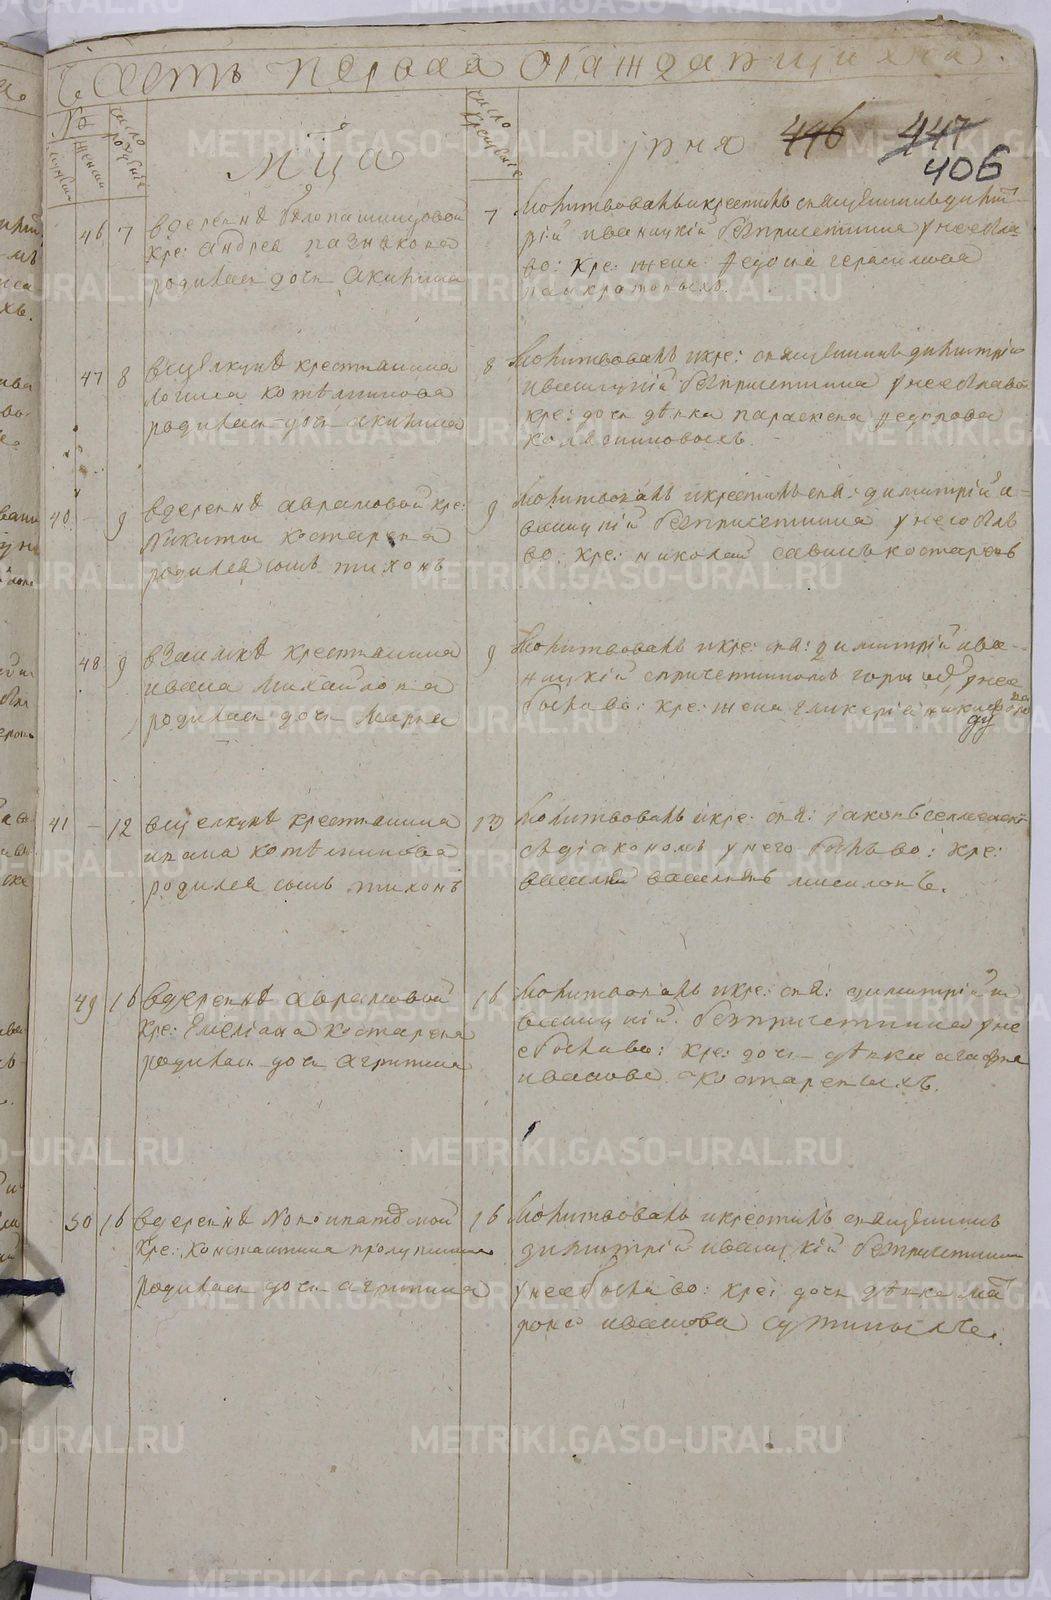 Часть первая о рождающихся.
№ числа рождение
числа крещение
мужеск
женск
мца
іуня 446 447
406
46 7 вдеревнѣ белопашинцовой
кре: андрея пазникова
родилась дочь Акилина
7 Молитвовалъ икрестилъ священникъ димит
рій иваницкій безпричетника унеебыла
во: кре: жена федосья герасимова
панкратовыхъ
47 8 вщелкунѣ крестьянина
логина котѣлникова
родилась дочь акилина
8 Молитвовалъ икре: священникъ димитрій
иваницкій безпричетника унеебылаво
кре: дочь дѣвка параскева федорова
колясниковыхъ.
40 - 9 вдеревнѣ аврамовой кре:
Никиты костарева
родился сынъ тихонъ
9 молитвовалъ икрестилъ свя: димитрій и=
ваницкій безпричетника унегобылъ
во: кре: николай савинъ костаревъ
48 9 взаимкѣ крестьянина
ивана михайлова
родилась дочь Марья
9 Молитвовалъ икре: свя: димитрій ива-
ницкій спричетникомъ унее
былаво: кре: жена гликерія никифоро
ва
41 - 12 вщелкунѣ крестьянина
ивана котѣлникова
родился сынъ тихонъ
13 Молитвовалъ икре: свя: іаковъ
сдіакономъ унего былъ во: кре:
василей васильевъ
49 16 вдеревнѣ аврамовой
кре: Емеліана костарева
родилась дочь агрипина
16 Молитвовалъ икре: свя: димитрій и
ваницкій безпричетника уне
е былаво: кре: дочь дѣвка агафья
иванова костаревыхъ.
50 16 вдеревнѣ Новоипатовской
кре: константина
родилась дочь агрипина
16 Молитвовалъ икрестилъ священникъ
димитрій иваницкій безпричетника
унеебылаво: кре: дочь дѣвка мат
рона иванова
METRIKI.GASO-URAL.RU